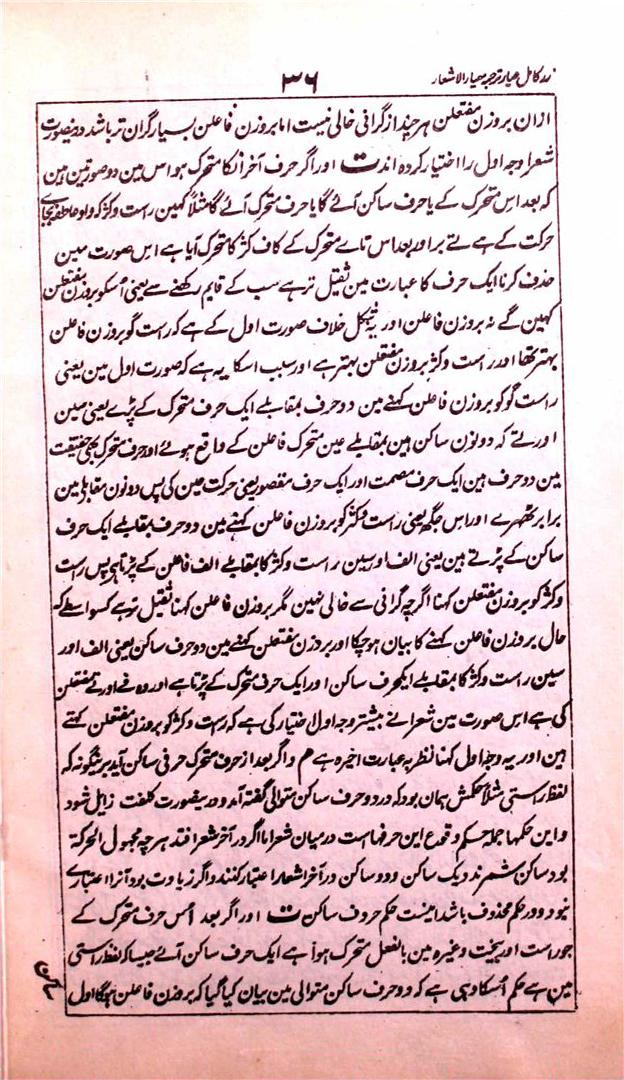 زر کامل عیار ترجمہ معیار الاشعار
۳۶
ازان بروزن مفتعلن ہر چند از گرانی خالی نیست اما بروزن فاعلن بسیار گران تر باشد و درینصورت
شعرا وجہ اول را اختیار کردہ اند ت اور اگر حرف آخر انکا متحرک ہو اس مین دو صورتین ہین
کہ بعد اس متحرک کے یا حرف ساکن آئے گا یا حرف متحرک آئے گا مثلاً کہین راست وکژ کہ واو عاطفہ بجاے
حرکت کے ہے تے پر اور بعد اس تاے متحرک کے کاف کژ کا متحرک آیا ہے اس صورت مین
حذف کرنا ایک حرف کا عبارت مین ثقیل تر ہے سب کے قایم رکھنے سے یعنی اُسکو بروزن مفتعلن
کہین گے نہ بروزن فاعلن اور یہ شکل خلاف صورت اول کے ہے کہ راست گو بروزن فاعلن
بہتر تھا اور راست وکژ بروزن مفتعلن بہتر ہے اور سبب اسکا یہ ہے کہ صورت اول مین یعنی
راست گو کو بروزن فاعلن کہنے مین دو حرف بمقابلے ایک حرف متحرک کے پڑے یعنی سین
اور تے کہ دونون ساکن ہین بمقابلے عین متحرک فاعلن کے واقع ہوئے اور حرف متحرک بھی حقیقت
مین دو حرف ہین ایک حرف مصمت اور ایک حرف مقصور یعنی حرکت عین کی پس دونون مقابلے مین
برابر ٹھہرے اور اس جگہ یعنی راست وکژ کو بروزن فاعلن کہنے مین دو حرف بمقابلے ایک حرف
ساکن کے پڑتے ہین یعنی الف اور سین راست وکژ کا بمقابلے الف فاعلن کے پڑتا ہے پس راست
وکژ کو بروزن مفتعلن کہنا اگرچہ گرانی سے خالی نہین مگر بروزن فاعلن کہنا ثقیل تر ہے کسواسطے کہ
حال بروزن فاعلن کہنے کا بیان ہو چکا اور بروزن مفتعلن کہنے مین دو حرف ساکن یعنی الف اور
سین راست وکژ کا بمقابلے ایکحرف ساکن اور ایک حرف متحرک کے پڑتا ہے اور وہ فے اور تے مفتعلن
کی ہے اس صورت مین شعرا نے بیشتر وجہ اول اختیار کی ہے کہ راست وکژ کو بروزن مفتعلن کہتے
ہین اور یہ وجہ اول کہنا نظر بہ عبارت اخیرہ ہے م و اگر بعد از حرف متحرک حرفی ساکن آید بر نیگونہ کہ
لفظ راستی مثلاً حکمش ہمان بود کہ در دو حرف ساکن متوالی گفتہ آمد و درینصورت کلفت زایل شود
و این حکمہا جملہ حکم وقوع این حرفہاست در میان شعر اما اگر در آخر شعر افتد ہر چہ مجہول الحرکۃ
بود ساکن شمرند و یک ساکن و دو ساکن در آخر اشعار اعتبار کنند و اگر زیادت بود آنرا اعتبارے
نبود و در حکم محذوف باشد اینست حکم حروف ساکن ت اور اگر بعد اُس حرف متحرک کے
جو راست اور پخت وغیرہ مین بالفعل متحرک ہوا ہے ایک حرف ساکن آئے جیسا کہ لفظ راستی
مین ہے حکم اُسکا وہی ہے کہ دو حرف ساکن متوالی مین بیان کیا گیا کہ بروزن فاعلن ہوگا اول